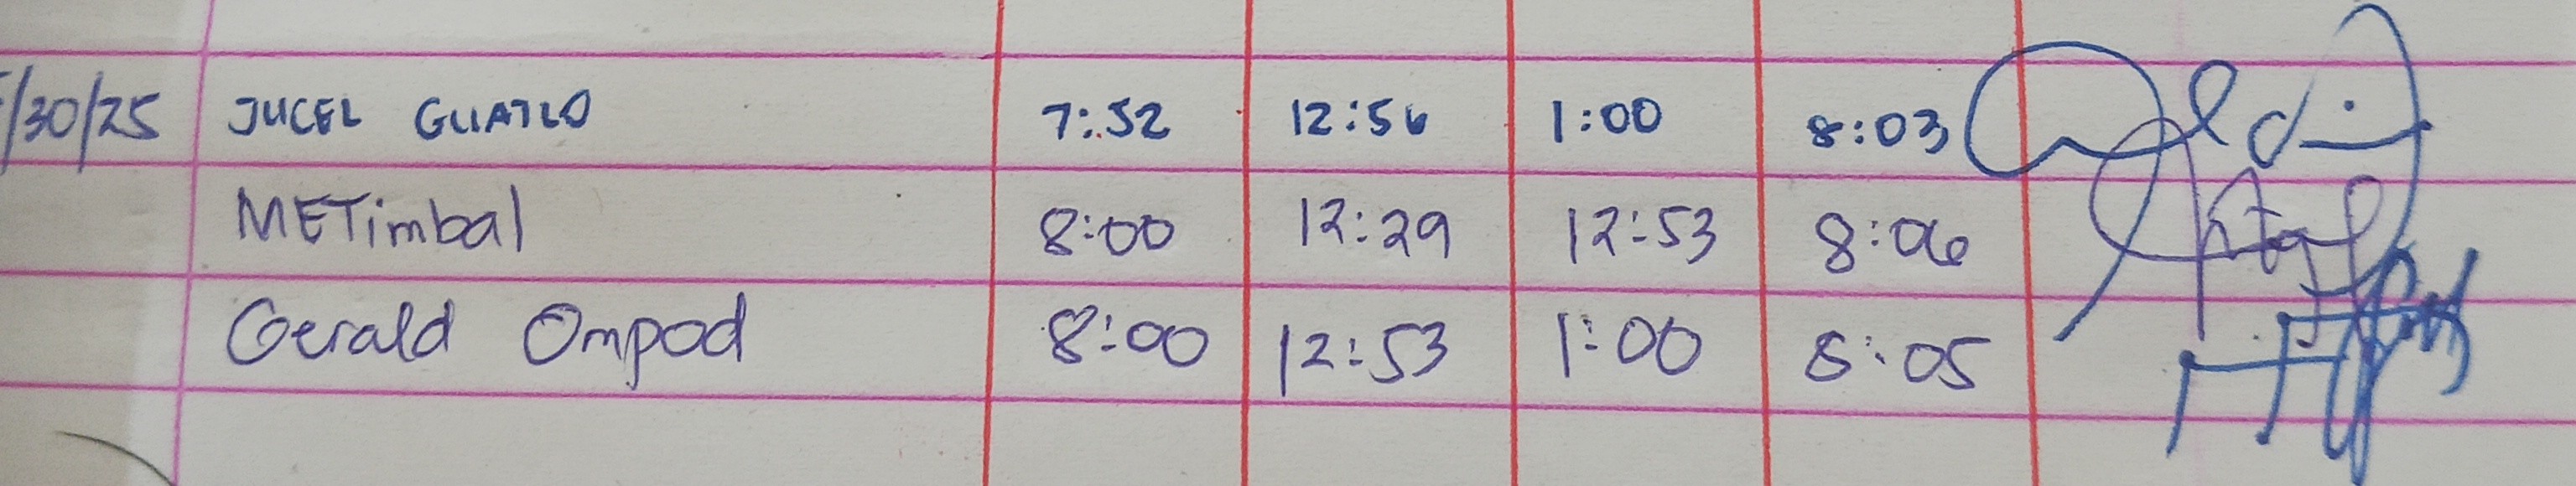 /30/25 JUCEL GUATLO 7:52 12:56 1:00 8:03
METimbal 8:00 12:29 12:53 8:06
Gerald Ompod 8:00 12:53 1:00 8:05